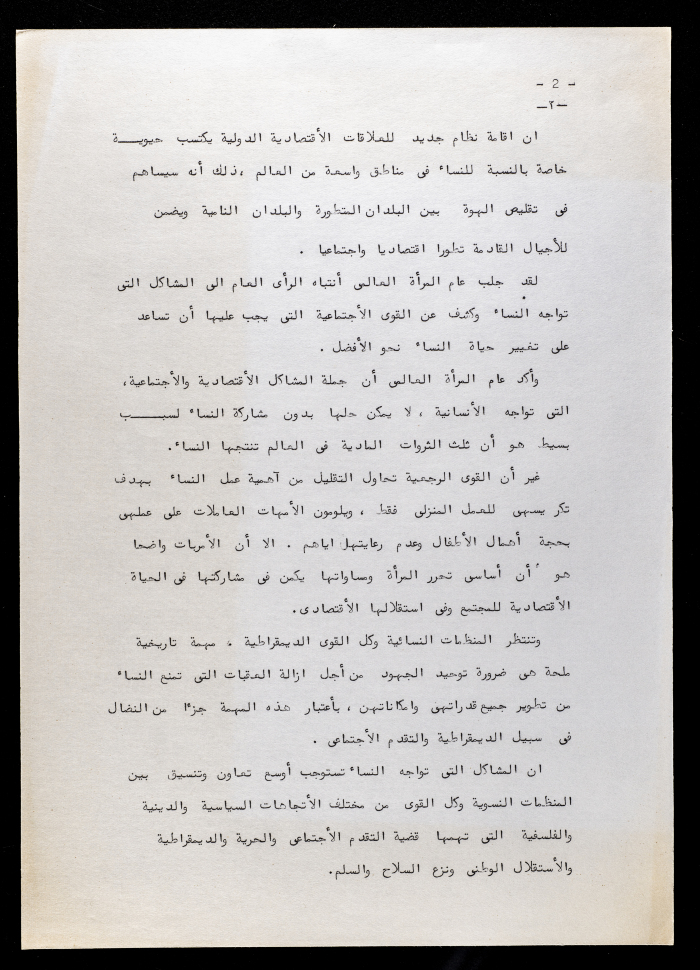 - 2 -
-٢-
ان اقامة نظام جديد للعلاقات الأقتصادية الدولية يكتسب حيويـــة
خاصة بالنسبة للنساء فى مناطق واسعة من العالم ،ذلك أنه سيساهم
فى تقليص الهوة بين البلدان المتطورة والبلدان النامية ويضمن
للأجيال القادمة تطورا اقتصاديا واجتماعيا .
لقد جلب عام المرأة العالمى أنتباه الرأى العام الى المشاكل التى
تواجه النساء وكشف عن القوى الأجتماعية التى يجب عليها أن تساعد
على تغيير حياة النساء نحو الأفضل .
وأكد عام المرأة العالمى أن جملة المشاكل الأقتصادية والأجتماعية،
التى تواجه الأنسانية ، لا يمكن حلها بدون مشاركة النساء لسبـــب
بسيط هو أن ثلث الثروات المادية فى العالم تنتجها النساء.
غير أن القوى الرجعية تحاول التقليل من أهمية عمل النساء بهدف
تكريسهى للعمل المنزلى فقط ، ويلومون الأمهات العاملات على عملهى
بحجة أهمال الأطفال وعدم رعايتها اياهم . الا أن الأمر واضحا
هو أن أساسى تحرر المرأة ومساواتها يكمن فى مشاركتها فى الحياة
الأقتصادية للمجتمع وفى استقلالها الأقتصادى.
وتنتظر المنظمات النسائية وكل القوى الديمقراطية ، مهمة تاريخية
ملحة هى ضرورة توحيد الجهود من أجل ازالة العقبات التى تمنع النساء
من تطوير جميع قدراتهى وامكاناتهن ، بأعتبار هذه المهمة جزءا من النضال
فى سبيل الديمقراطية والتقدم الأجتماعى .
ان المشاكل التى تواجه النساء تستوجب أوسع تعاون وتنسيق بين
المنظمات النسوية وكل القوى من مختلف الأتجاهات السياسية والدينية
والفلسفية التى تهمها قضية التقدم الأجتماعى والحرية والديمقراطية
والأستقلال الوطنى ونزع السلاح والسلم.